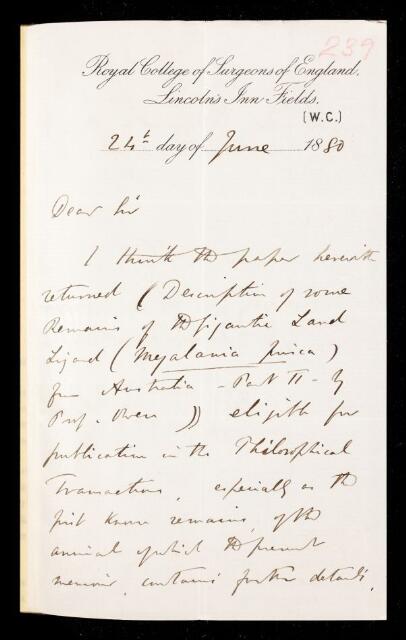 239
Royal College of Surgeons of England,
Lincoln's Inn Fields.
(W.C.)
24th day of June 1880
Dear Sir
I think the paper herewith
returned (Description of some
Remains of the Gigantic Land
Lizard (Megalania prisca)
from Australia - Part II - by
Prof. Owen)) eligible for
publication in the Philosophical
Transactions, especially as the
first known remains, of the
animal of which the present
memoir, contains further details,